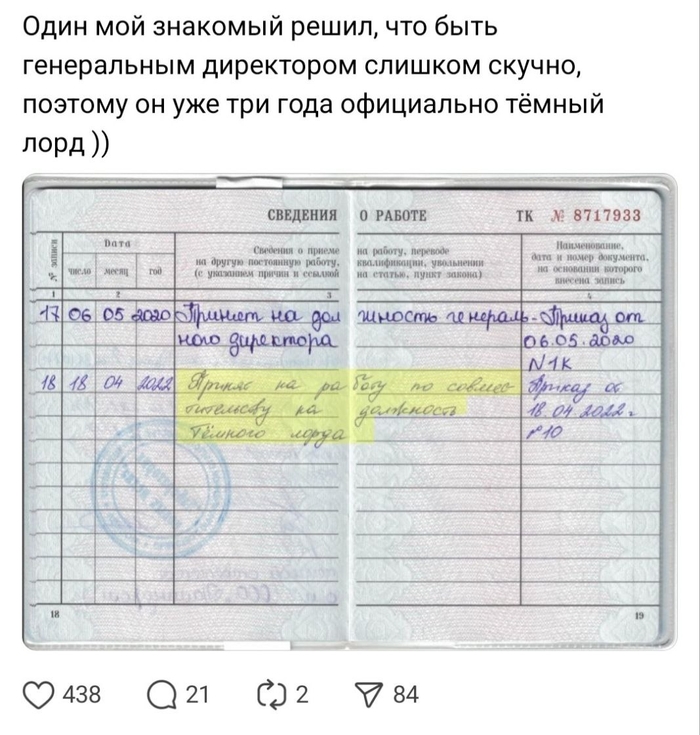 Один мой знакомый решил, что быть
генеральным директором слишком скучно,
поэтому он уже три года официально тёмный
лорд ))
СВЕДЕНИЯ О РАБОТЕ ТК № 8717933
№ записи
Дата
число месяц год
Сведения о приеме на работу, переводе
на другую постоянную работу, квалификации, увольнении
(с указанием причин и ссылкой на статью, пункт закона)
Наименование,
дата и номер документа,
на основании которого
внесена запись
1 2 3 4
17 06 05 2020 Принят на должность генераль-
ного директора
Приказ от
06.05.2020
N1К
18 18 04 2022 Принят на работу по совмес-
тительству на должность
Тёмного лорда
Приказ от
18.04.2022г
№10
18 19
438 21 2 84